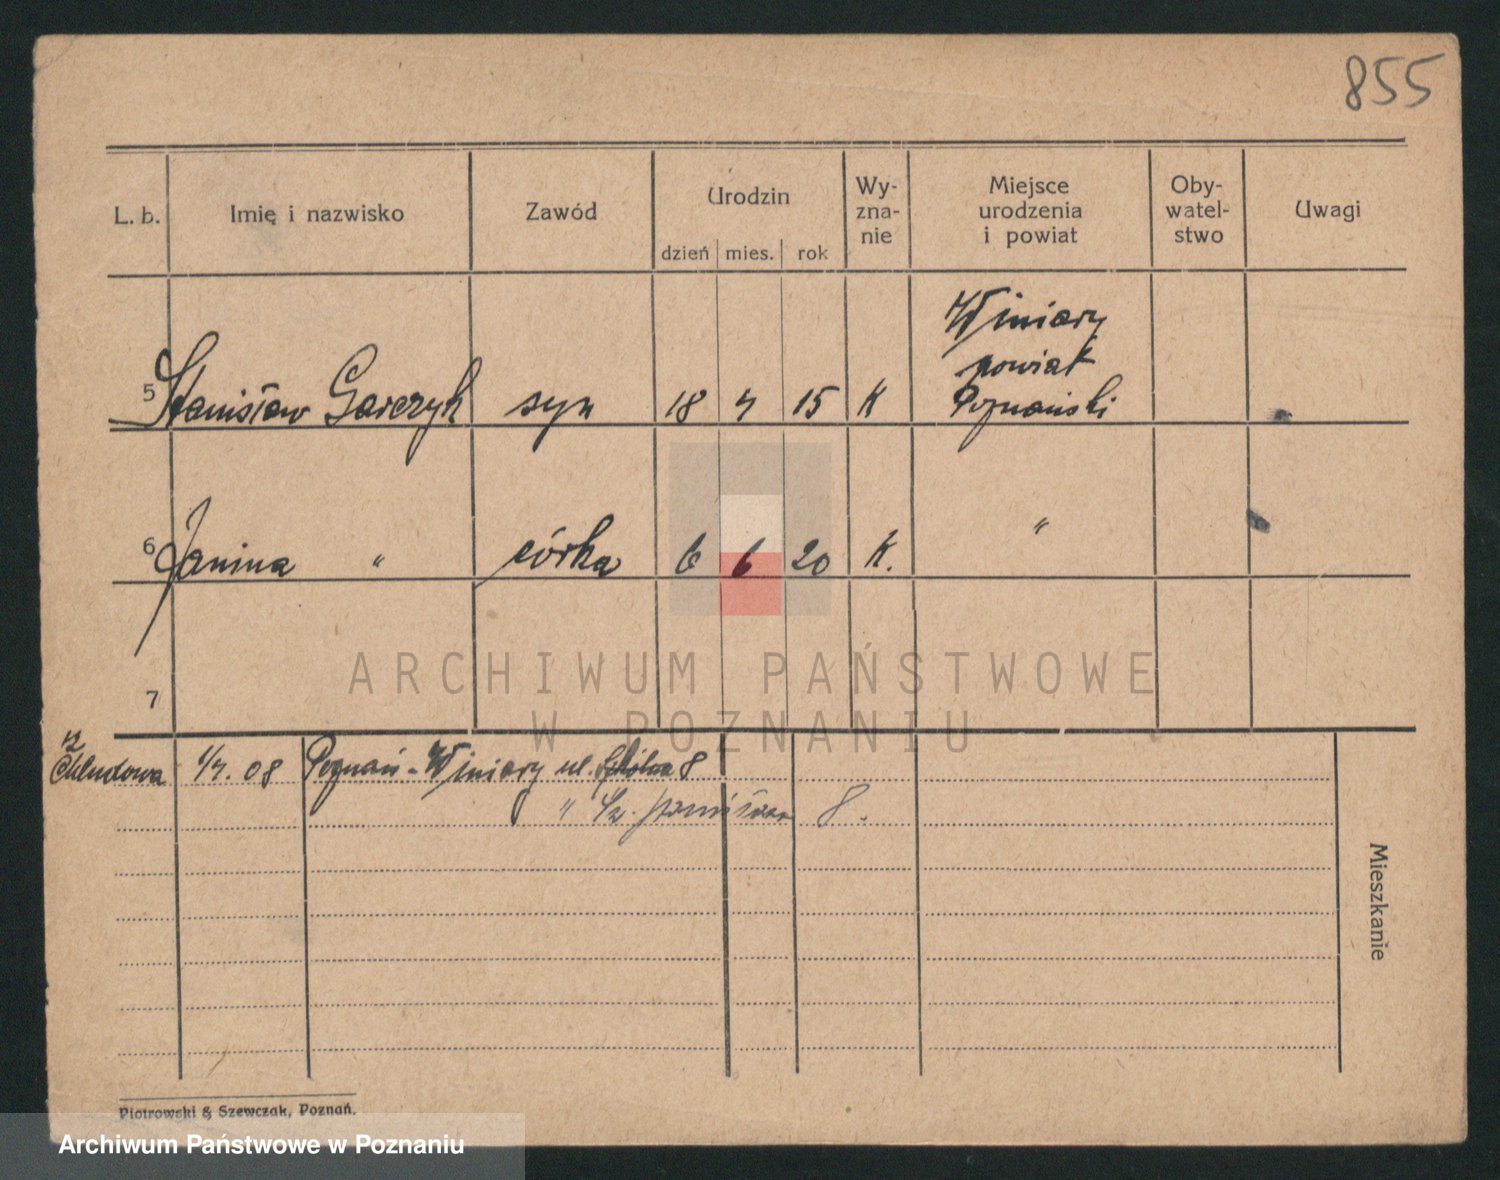 855
L. b. Imię i nazwisko Zawód Urodzin dzień mies. rok Wy-zna-nie Miejsce urodzenia i powiat Oby-watel-stwo Uwagi
5 Stanisław Garczyk syn 18 7 15 K Winiary powiat Poznański
6 Janina " córka 6 6 20 K. "
7
ARCHIWUM PAŃSTWOWE
W POZNANIU
z Chludowa 1/7. 08 Poznań-Winiary ul. 8
" 8.
Mieszkanie
Piotrowski & Szewczak, Poznań.
Archiwum Państwowe w Poznaniu